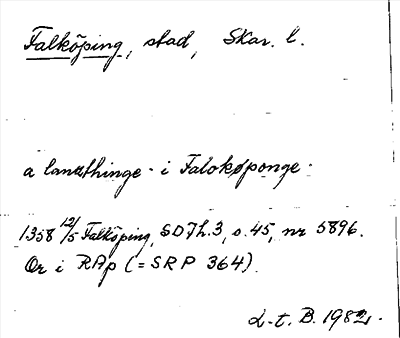 Falköping, stad, Skar. l.
a landthinge i Falokøponge
1358 12/5 Falköping, SD 7 h. 3, s. 45, nr 5896.
Or i RAp (= SRP 364).
L-t. B. 1982.